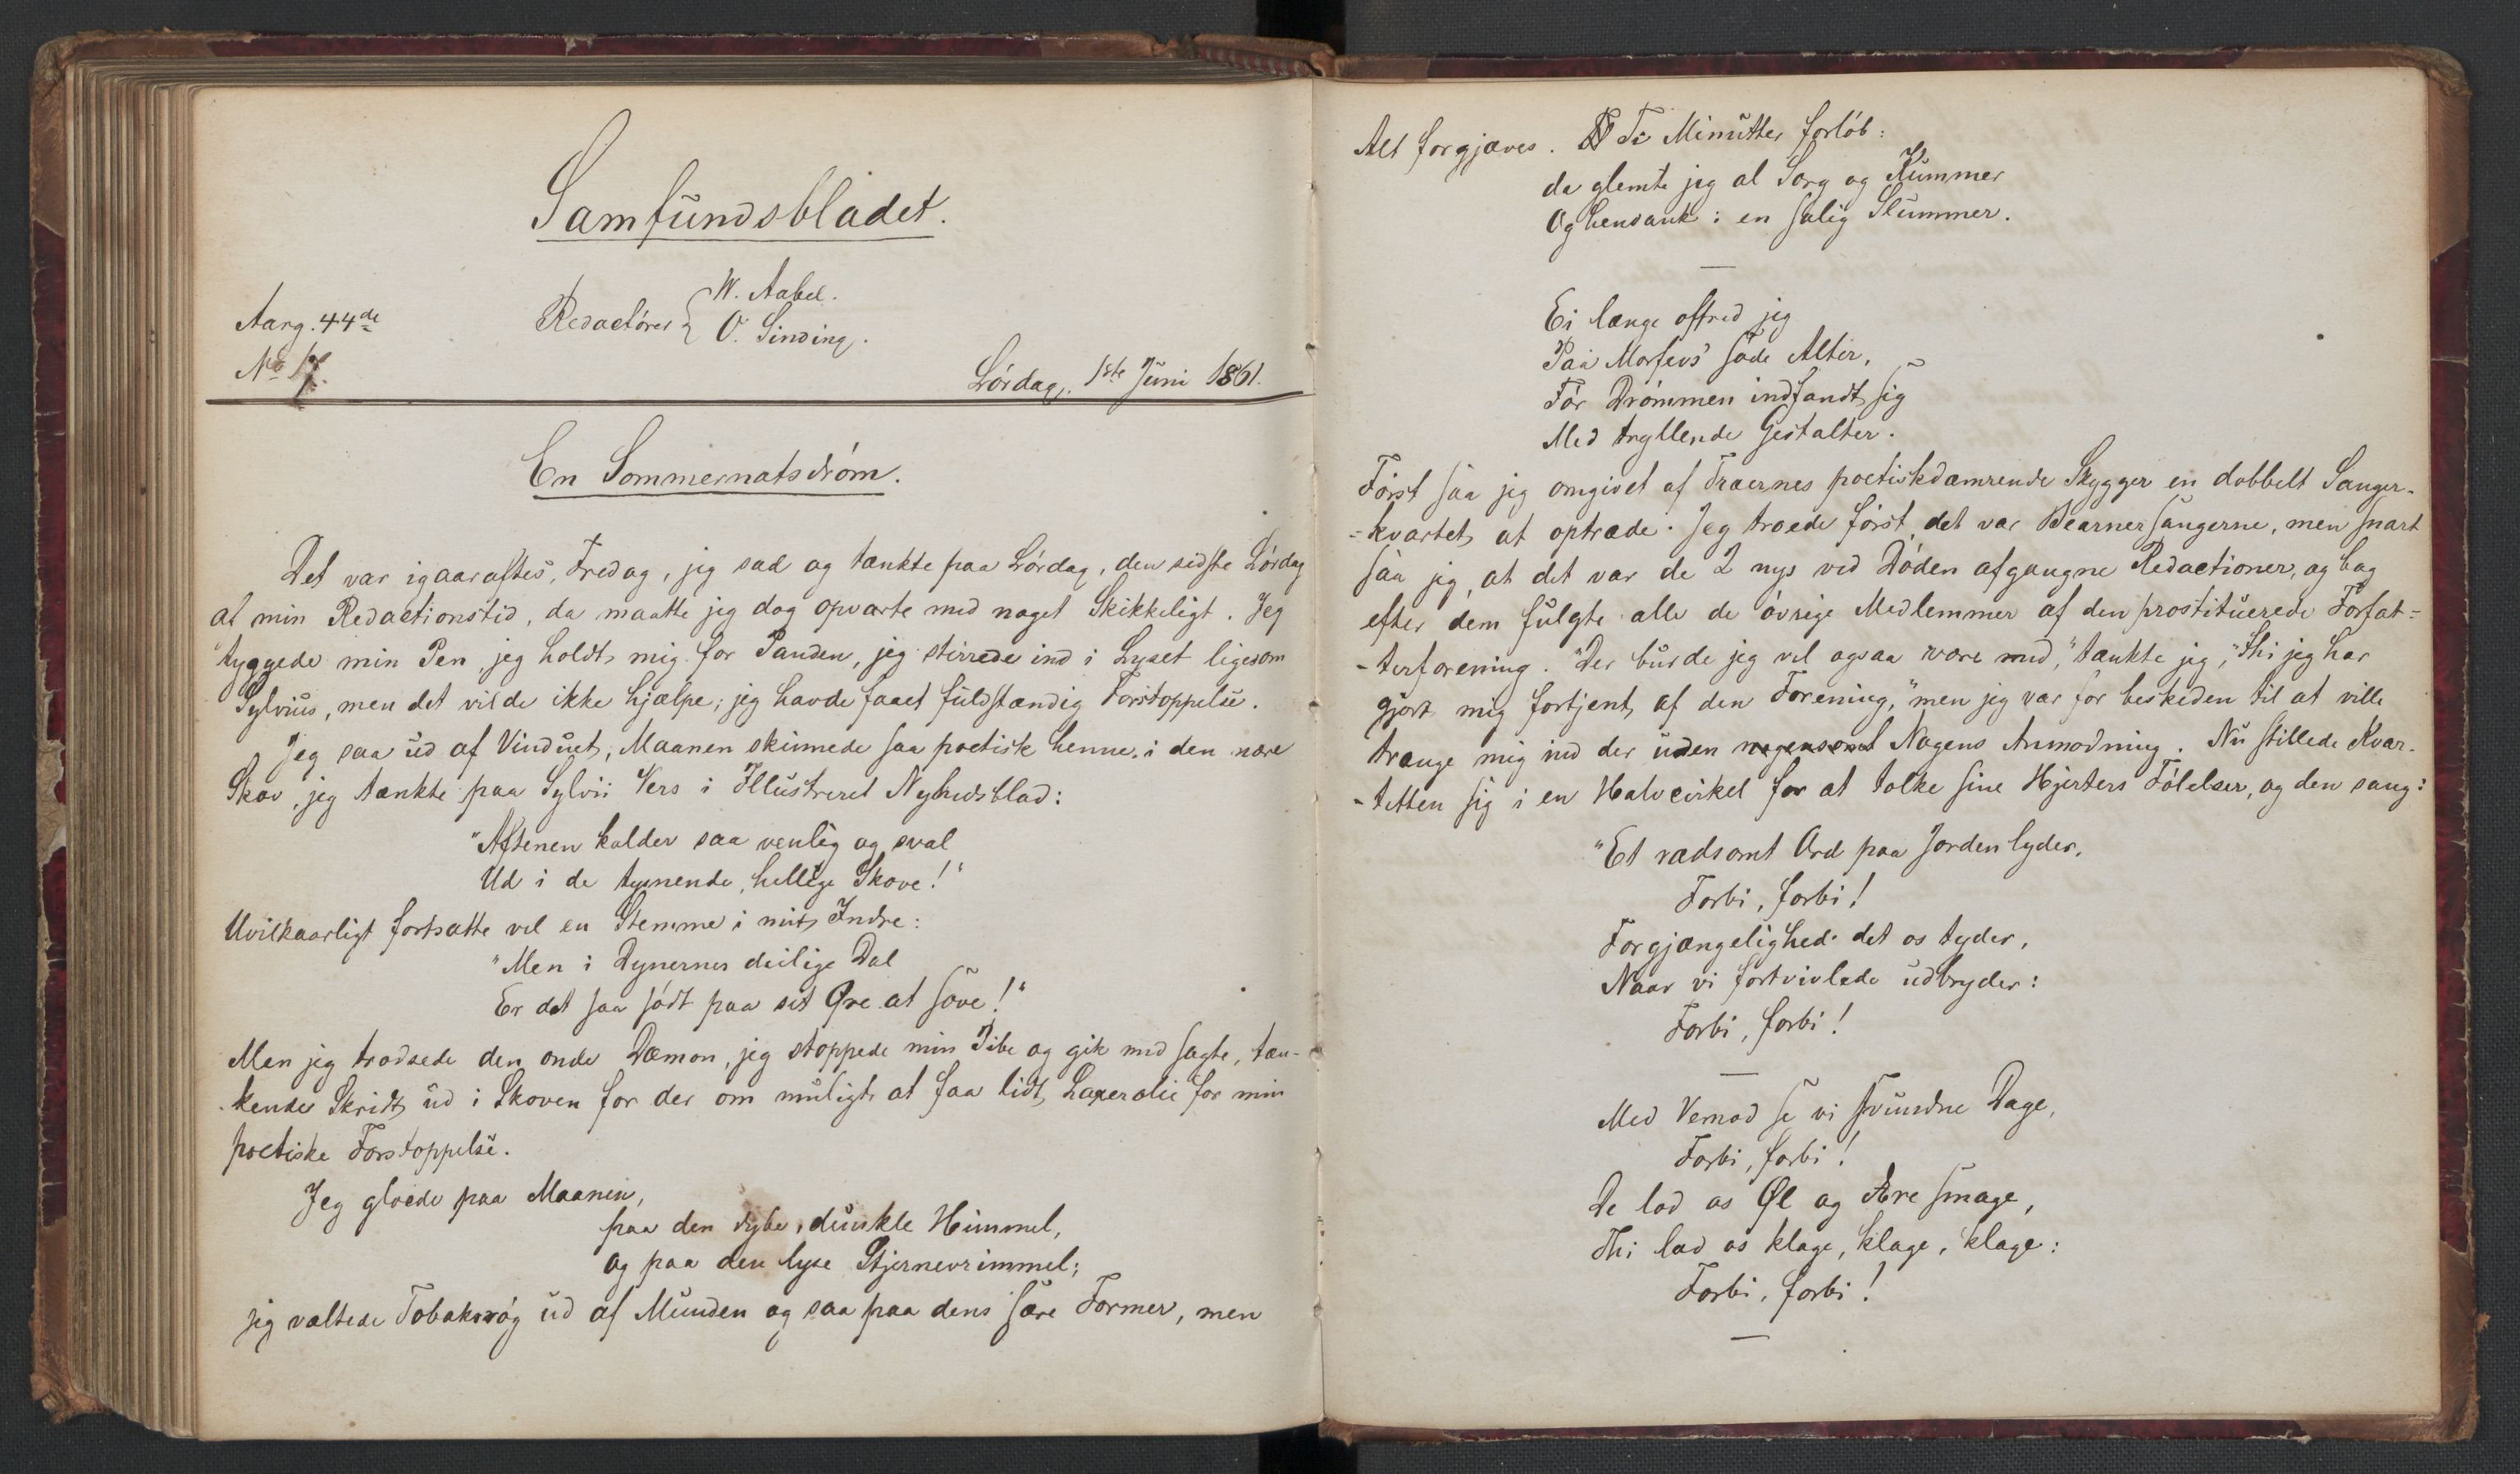 Samfundsbladet.
Aarg. 44de
Redactører { W. Aabel.
O. Sinding.
No 17.
Lørdag, 1ste Juni 1861.
En Sommernatsdrøm.
Det var igaaraftes, Fredag, jeg sad og tænkte paa Lørdag, den sidste Lørdag
af min Redactionstid, da maatte jeg dog opvarte med noget Skikkeligt. Jeg
tyggede min Pen, jeg holdt mig for Panden, jeg stirrede ind i Lyset ligesom
Sylvius, men det vilde ikke hjælpe; jeg havde faaet fuldstændig Forstoppelse.
Jeg saa ud af Vinduet, Maanen skinnede saa poetisk henne i den nære
Skov, jeg tænkte paa Sylvii Vers i Illustreret Nyhedsblad:
"Aftenen kalder saa venlig og sval
Ud i de tyenende, hellige Skove!"
Uvilkaarligt fortsatte vel en Stemme i mit Indre:
"Men i Dynernes deilige Dal
Er det saa sødt paa sit Øre at sove!"
Men jeg trodsede den onde Dæmon, jeg stoppede min Pibe og gik med sagte, tæn-
kende Skridt ud i Skoven for der om muligt at faa lidt Laxerolie for min
poetiske Forstoppelse.
Jeg gloede paa Maanen,
paa den dybe, dunkle Himmel,
og paa den lyse Stjernevrimmel;
jeg væltede Tobaksrøg ud af Munden og saa paa dens sære Former, men
Alt forgjæves. Ti Minutter forløb:
da glemte jeg al Sorg og Kummer
Og hensank i en salig Slummer.
—
Ei længe offred jeg
Paa Morfevs' søde Alter,
Før Drømmen indfandt sig
Med tryllende Gestalter.
Først saa jeg omgivet af Træernes poetiskdæmrende Skygger en dobbelt Sanger-
-kvartet at optræde. Jeg troede først, det var Bearnersangerne, men snart
saa jeg, at det var de 2 nys ved Døden afgangne Redactioner, og bag
efter dem fulgte alle de øvrige Medlemmer af den prostituerede Forfat=
-terforening. "Der burde jeg vel ogsaa være med," tænkte jeg, "Thi jeg har
gjort mig fortjent af den Forening," men jeg var for beskeden til at ville
trænge mig ind der uden nogensomt Nogens Anmodning. Nu stillede Kvar-
-tetten sig i en Halvcirkel for at tolke sine Hjerters Følelser, og den sang:
"Et rædsomt Ord paa Jorden lyder,
Forbi, forbi!
Forgjængelighed det os tyder,
Naar vi fortvivlede udbryder:
Forbi, forbi!
—
Med Vemod se vi svundne Dage,
Forbi, forbi!
De lod os Øl og Ære smage,
Thi lad os klage, klage, klage:
Forbi, forbi!
—